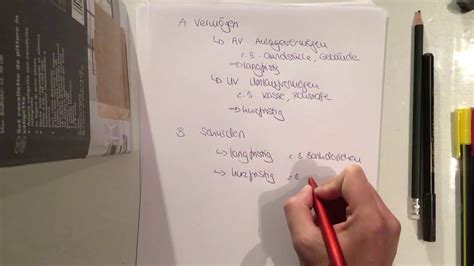 A Vermögen
↳ AV Anlagevermögen
z.B. Grundstücke, Gebäude
→ langfristig
↳ UV Umlaufvermögen
z.B. Kasse, Rohstoffe
→ kurzfristig
B Schulden
↳ langfristig z.B. Bankdarlehen
↳ kurzfristig z.B.